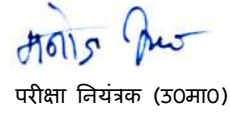 मनोज
परीक्षा नियंत्रक (उ0मा0)